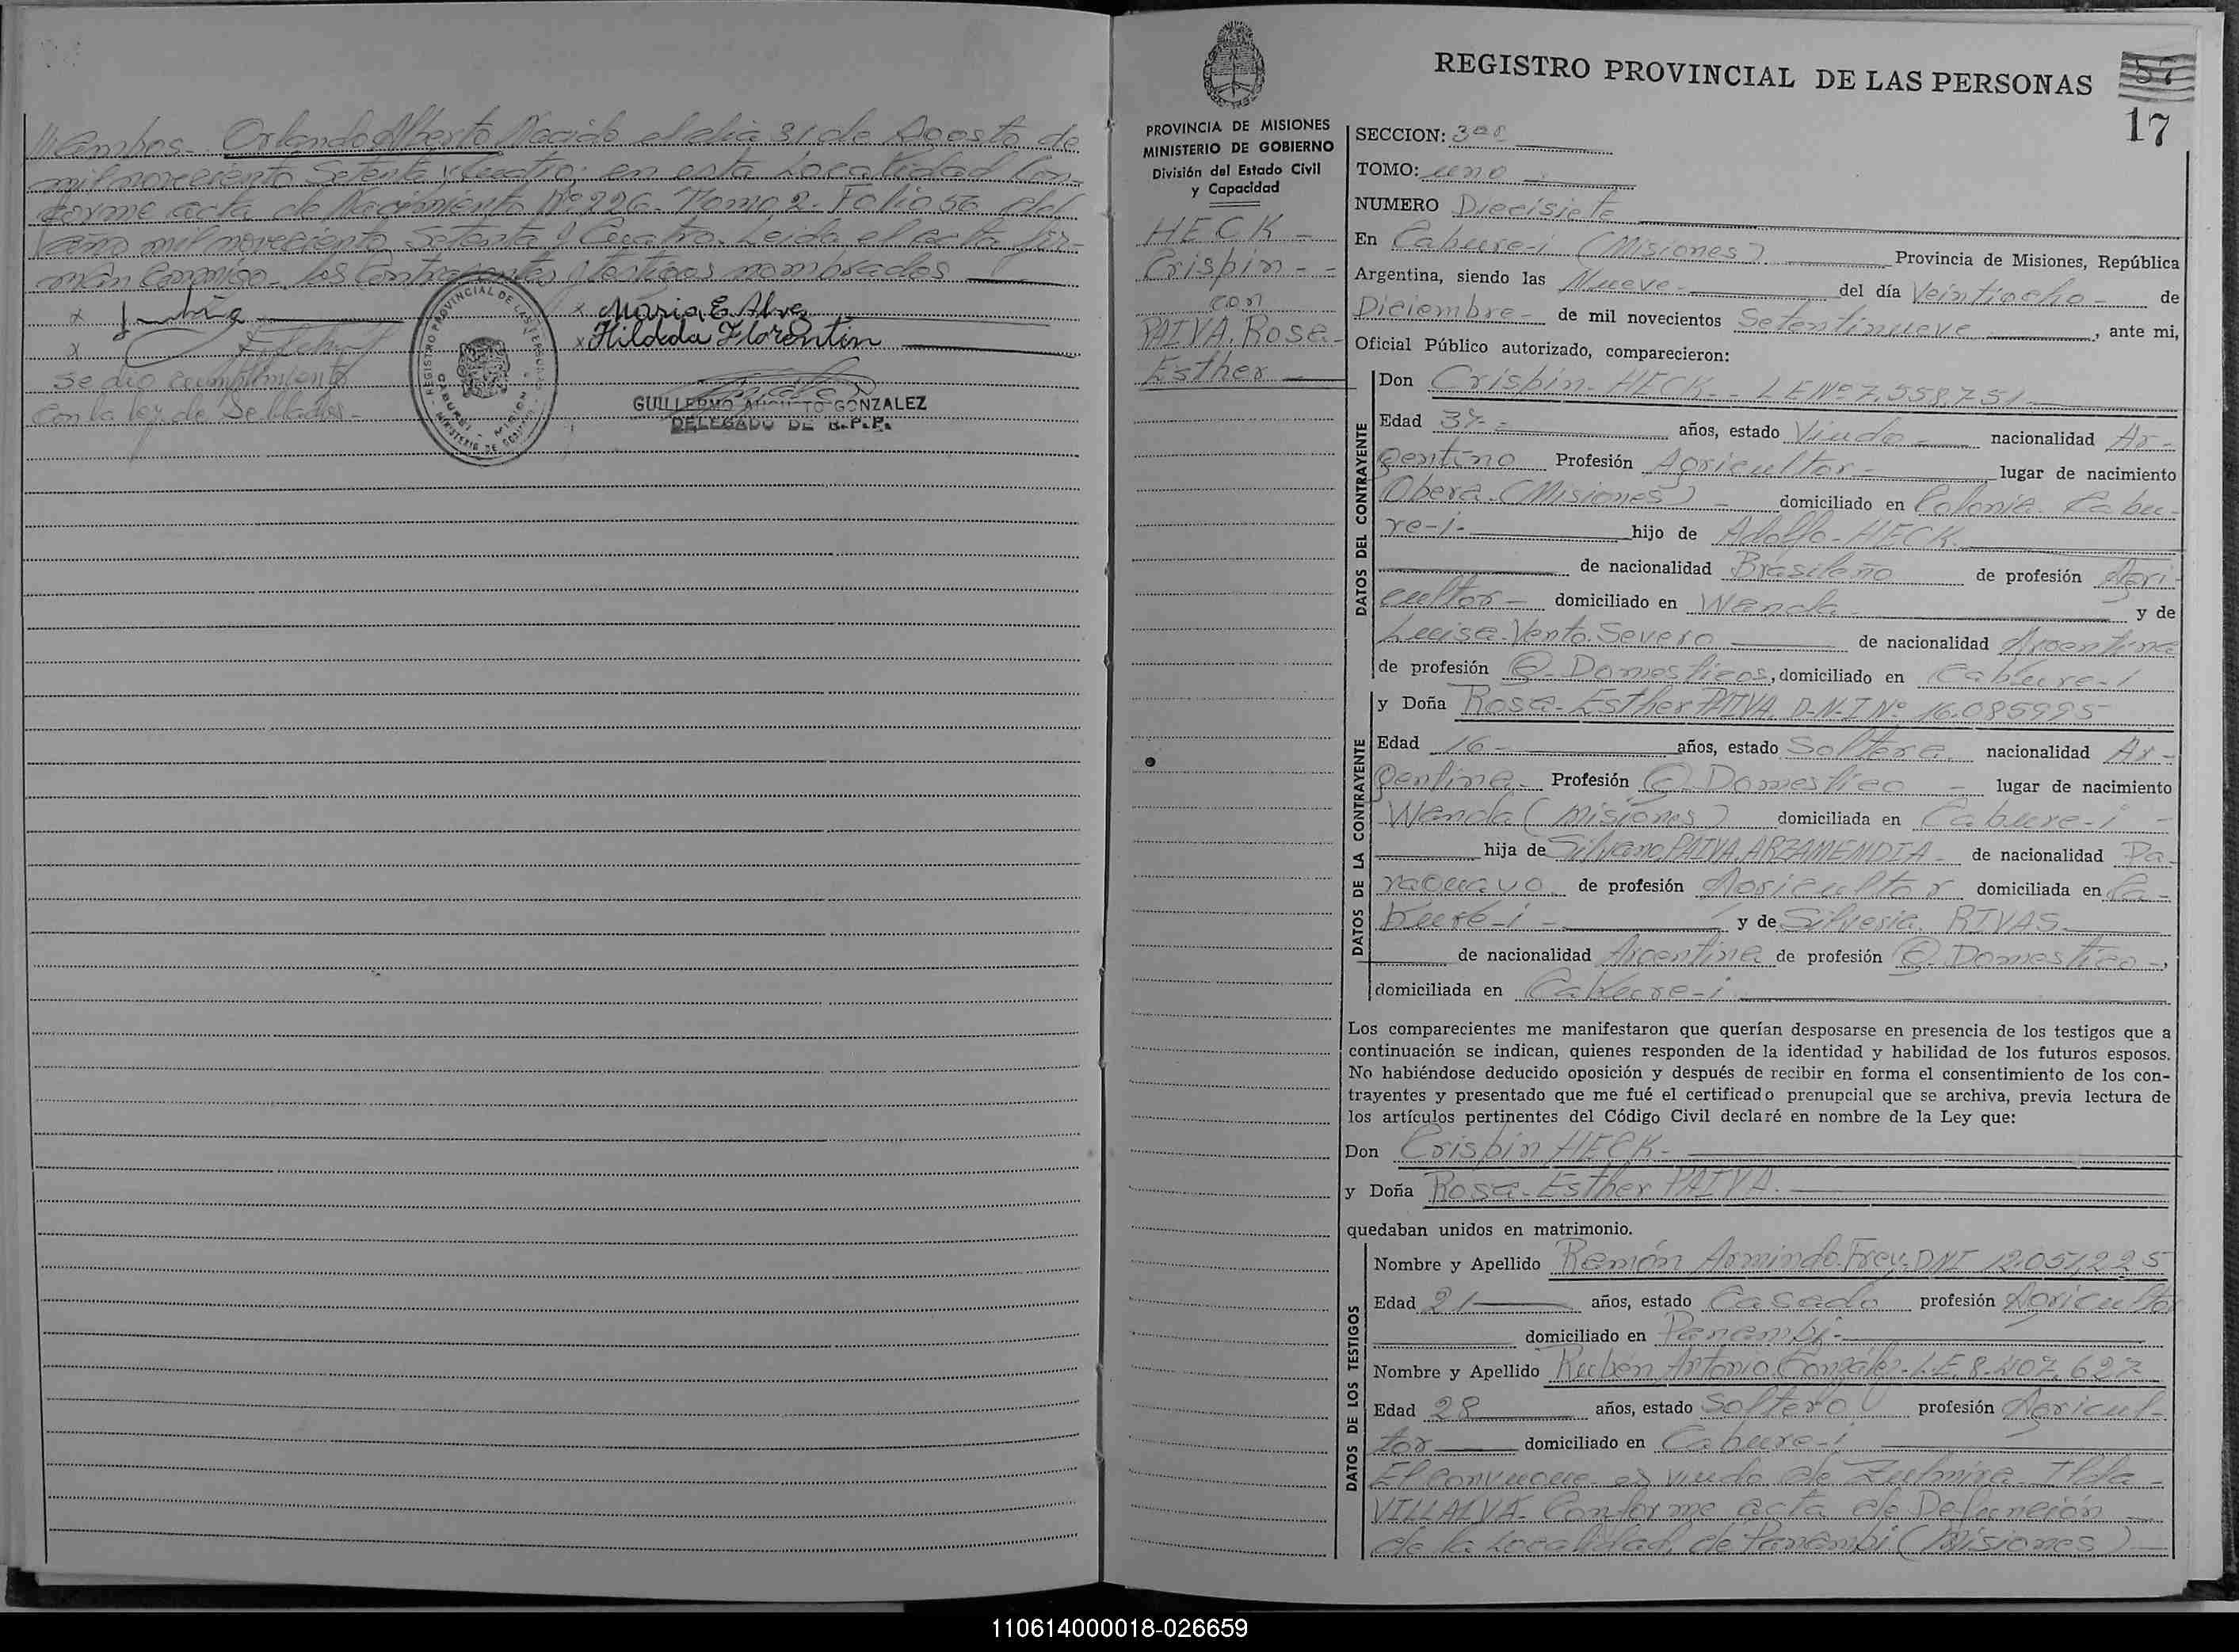 //ambos.- Orlando Alberto Nacido el dia 31 de Agosto de
mil noveciento Setenta y Cuatro: en esta Localidad Con-
forme acta de Nacimiento Nº 226. Tomo 2. Folio 56 del
año mil noveciento Setenta y Cuatro. Leida el acta fir-
man Conmigo. los Contrayentes y testigos nombrados
x
x Maria E. Alvez
x
x Hildeda Florentin
se dio cumplimiento
Con la ley de Sellados-
REGISTRO PROVINCIAL DE LAS PERSONAS
MINISTERIO DE GOBIERNO
GUILLERMO AUGUSTO GONZALEZ
DELEGADO DE R.P.P.
REGISTRO PROVINCIAL DE LAS PERSONAS
57
17
PROVINCIA DE MISIONES
MINISTERIO DE GOBIERNO
División del Estado Civil
y Capacidad
HECK -
Crispin - -
con
PAIVA. Rosa-
Esther
SECCION: 3ª
TOMO: uno
NUMERO Diecisiete
En Cabure-i (Misiones) Provincia de Misiones, República
Argentina, siendo las Nueve- del día Veintiocho- de
Diciembre- de mil novecientos Setentinueve, ante mi,
Oficial Público autorizado, comparecieron:
DATOS DEL CONTRAYENTE
Don Crispin- HECK.- LE Nº 7.558.751
Edad 37- años, estado Viudo- nacionalidad Ar-
gentino Profesión Agricultor- lugar de nacimiento
Obera. (Misiones) - domiciliado en Colonia. Cabu-
re-i- hijo de Adolfo-HECK
de nacionalidad Brasileño de profesión Agri-
cultor- domiciliado en Wanda y de
Luisa. Vento. Severo de nacionalidad Argentina
de profesión Q. Domesticos, domiciliado en Cabure-i
DATOS DE LA CONTRAYENTE
y Doña Rosa-Esther PAIVA. D-N-I Nº 16.085995
Edad 16- años, estado Soltera. nacionalidad Ar-
gentina- Profesión Q. Domestico - lugar de nacimiento
Wanda (Misiones) domiciliada en Cabure-i -
hija de Silvano. PAIVA. ARZAMENDIA- de nacionalidad Pa-
raguayo de profesión Agricultor domiciliada en Ca-
bure-i - y de Silvesia. RIVAS.
de nacionalidad Argentina de profesión Q. Domestico-,
domiciliada en Cabure-i
Los comparecientes me manifestaron que querían desposarse en presencia de los testigos que a
continuación se indican, quienes responden de la identidad y habilidad de los futuros esposos.
No habiéndose deducido oposición y después de recibir en forma el consentimiento de los con-
trayentes y presentado que me fué el certificado prenupcial que se archiva, previa lectura de
los artículos pertinentes del Código Civil declaré en nombre de la Ley que:
Don Crispin HECK-
y Doña Rosa-Esther PAIVA.
quedaban unidos en matrimonio.
DATOS DE LOS TESTIGOS
Nombre y Apellido Ramón Armindo. Frey. DNI 12.051.225
Edad 21 años, estado Casado profesión Agricultor
domiciliado en Panambi-
Nombre y Apellido Rubén Antonio González- L.E. 8.407.627-
Edad 28 años, estado Soltero profesión Agricul-
tor domiciliado en Cabure-i
El conyugue- es viudo de Zulmira- Ilda-
VILLALVA- Conforme acta de Defunción
de la Localidad de Panambi (Misiones)
110614000018-026659